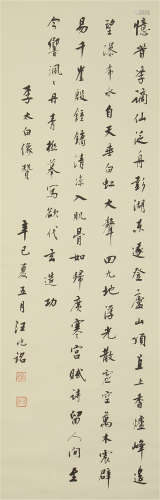 憶昔李謫仙泛舟彭湖東遂登廬山頂直上香爐峰遙
望瀑布水自天垂白虹大聲四九地浮光散虛空萬木震辟
易千崖殷鐘鏞清涼入肌骨如歸廣寒宮賦詩留人間至
今響渢渢丹青極摹寫欲代玄造功
李太白像贊
辛巳夏五月汪兆銘